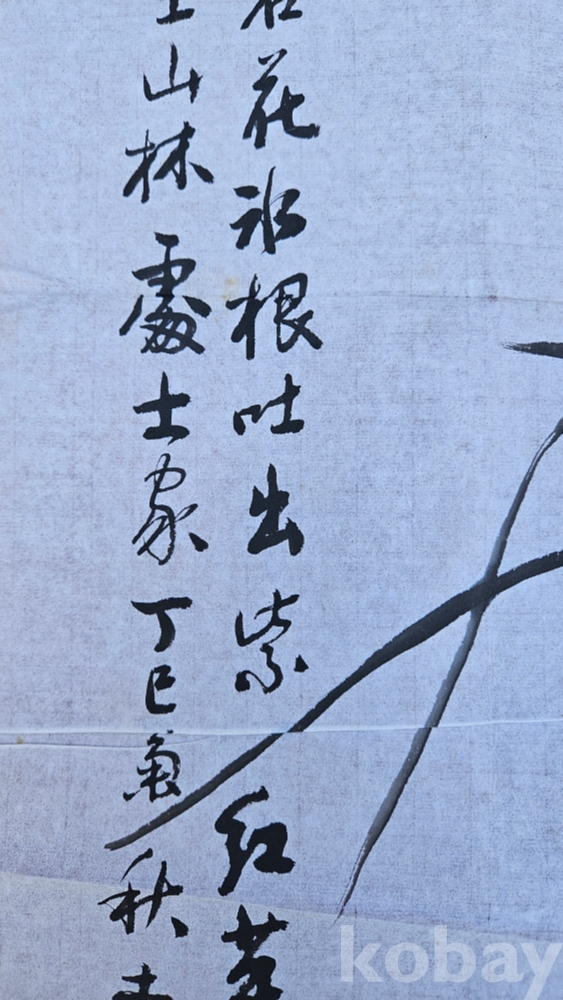 花氷根吐出紫紅
山林處士家丁巳菊秋
kobay